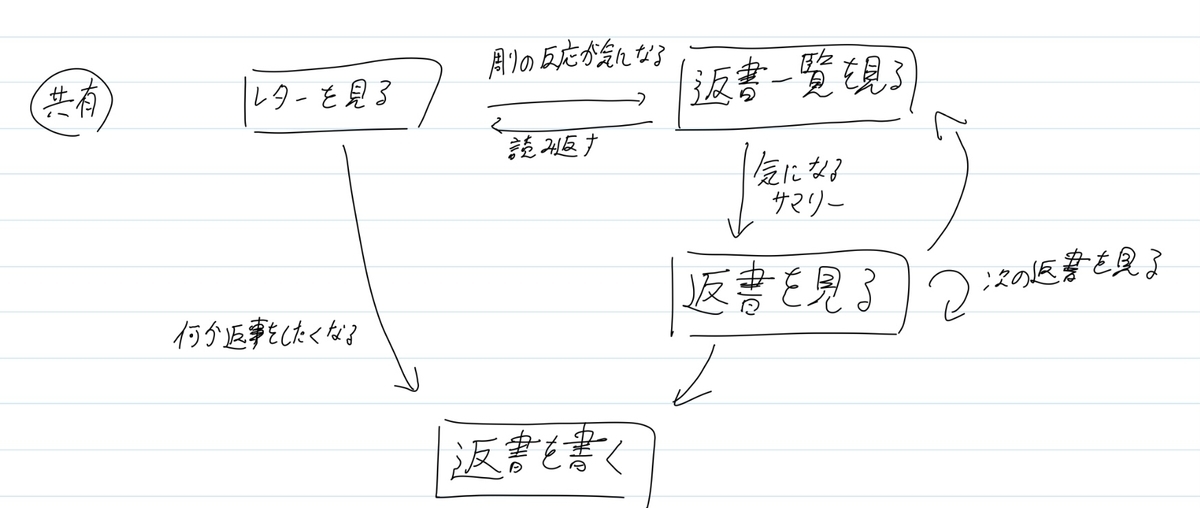 共有
レターを見る
周りの反応が気になる
返書一覧を見る
読み返す
気になる
サマリー
返書を見る
次の返書を見る
何か返事をしたくなる
返書を書く